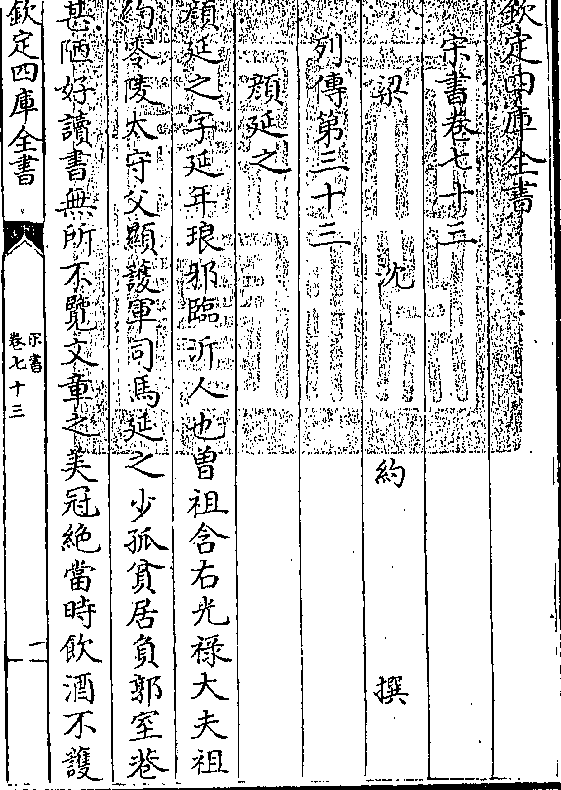 欽定四庫全書
宋書卷七十三
梁沈約撰
列傳第三十三
顔延之
顔延之字延年琅邪臨沂人也曽祖含右光祿大夫祖
約零陵太守父顯護軍司馬延之少孤貧居負郭室巷
甚陋好讀書無所不覽文章之美冠絶當時飲酒不護
欽定四庫全書
宋書
卷七十三
一